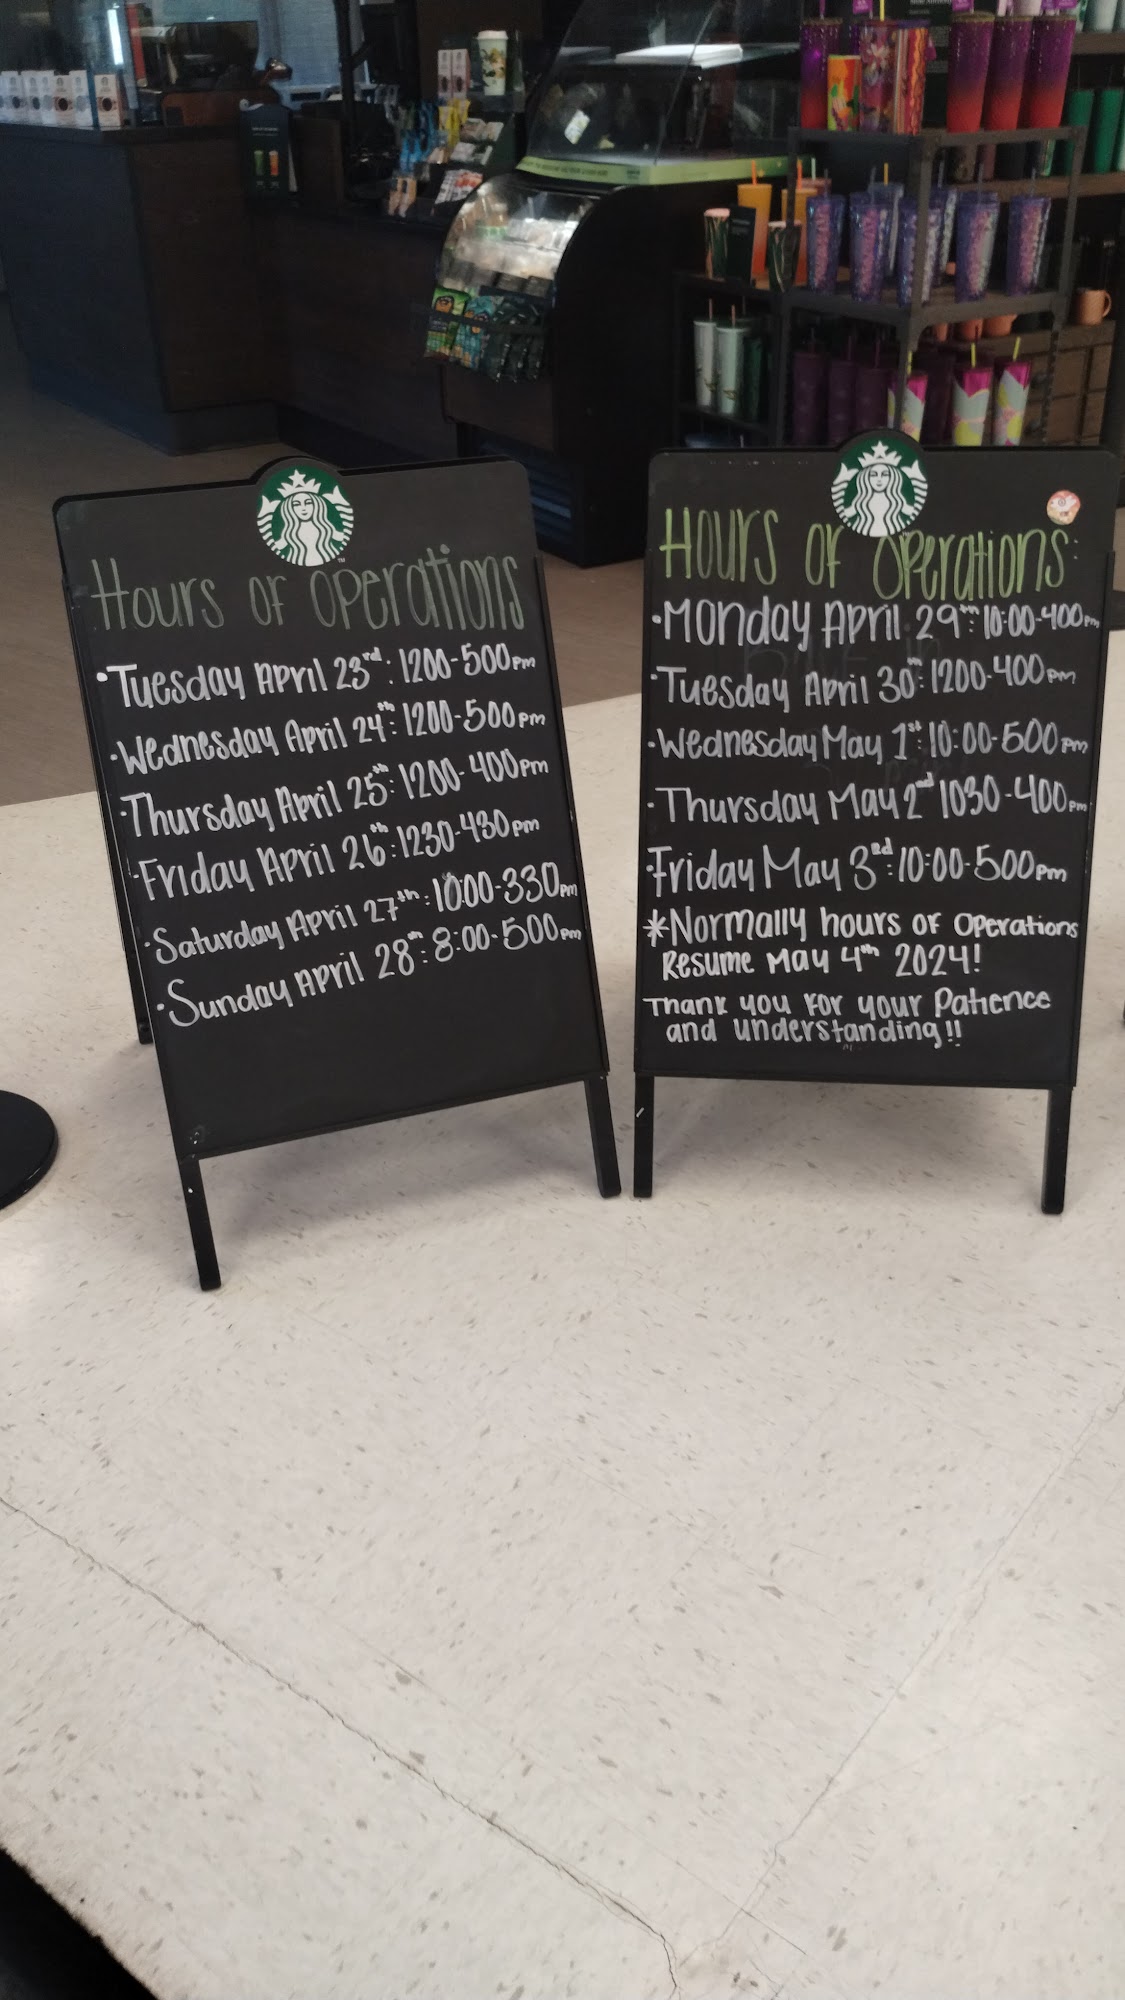 Hours of Operations
• Tuesday April 23rd: 1200-500pm
• Wednesday April 24th: 1200-500pm
• Thursday April 25th: 1200-400pm
• Friday April 26th: 1230-430pm
• Saturday April 27th: 10:00-330pm
• Sunday April 28th: 8:00-500pm
Hours of Operations:
• Monday April 29th: 10:00-400pm
• Tuesday April 30th: 1200-400pm
• Wednesday May 1st: 10:00-500pm
• Thursday May 2nd 1030-400pm
• Friday May 3rd: 10:00-500pm
*Normally hours of Operations
Resume May 4th 2024!
Thank you for your Patience
and understanding!!